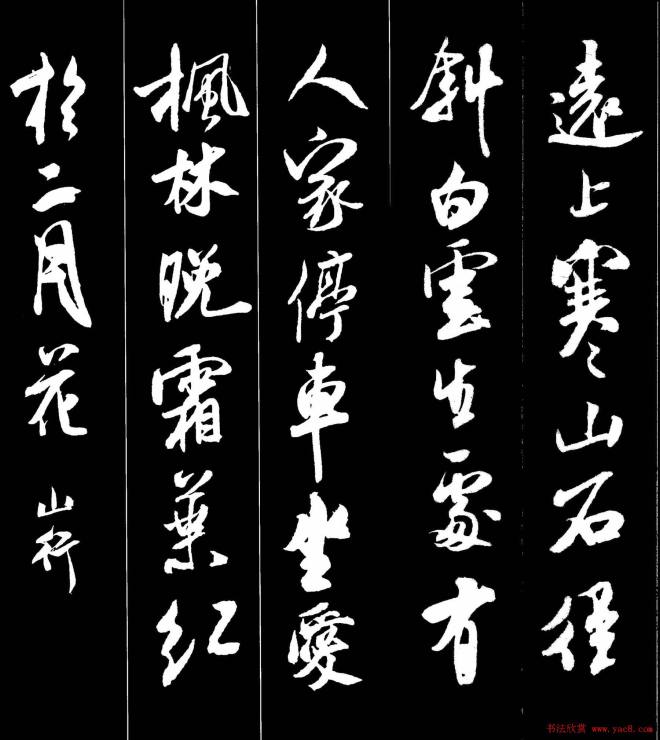 遠上寒山石徑
斜白雲生處有
人家停車坐愛
楓林晚霜葉紅
於二月花 山行
书法欣赏 www.yac8.com